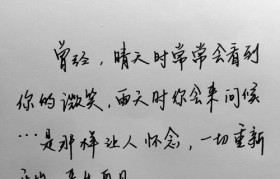 曾经，晴天时常常会看到
你的微笑，雨天时你会来问候
…是那样让人怀念，一切重新